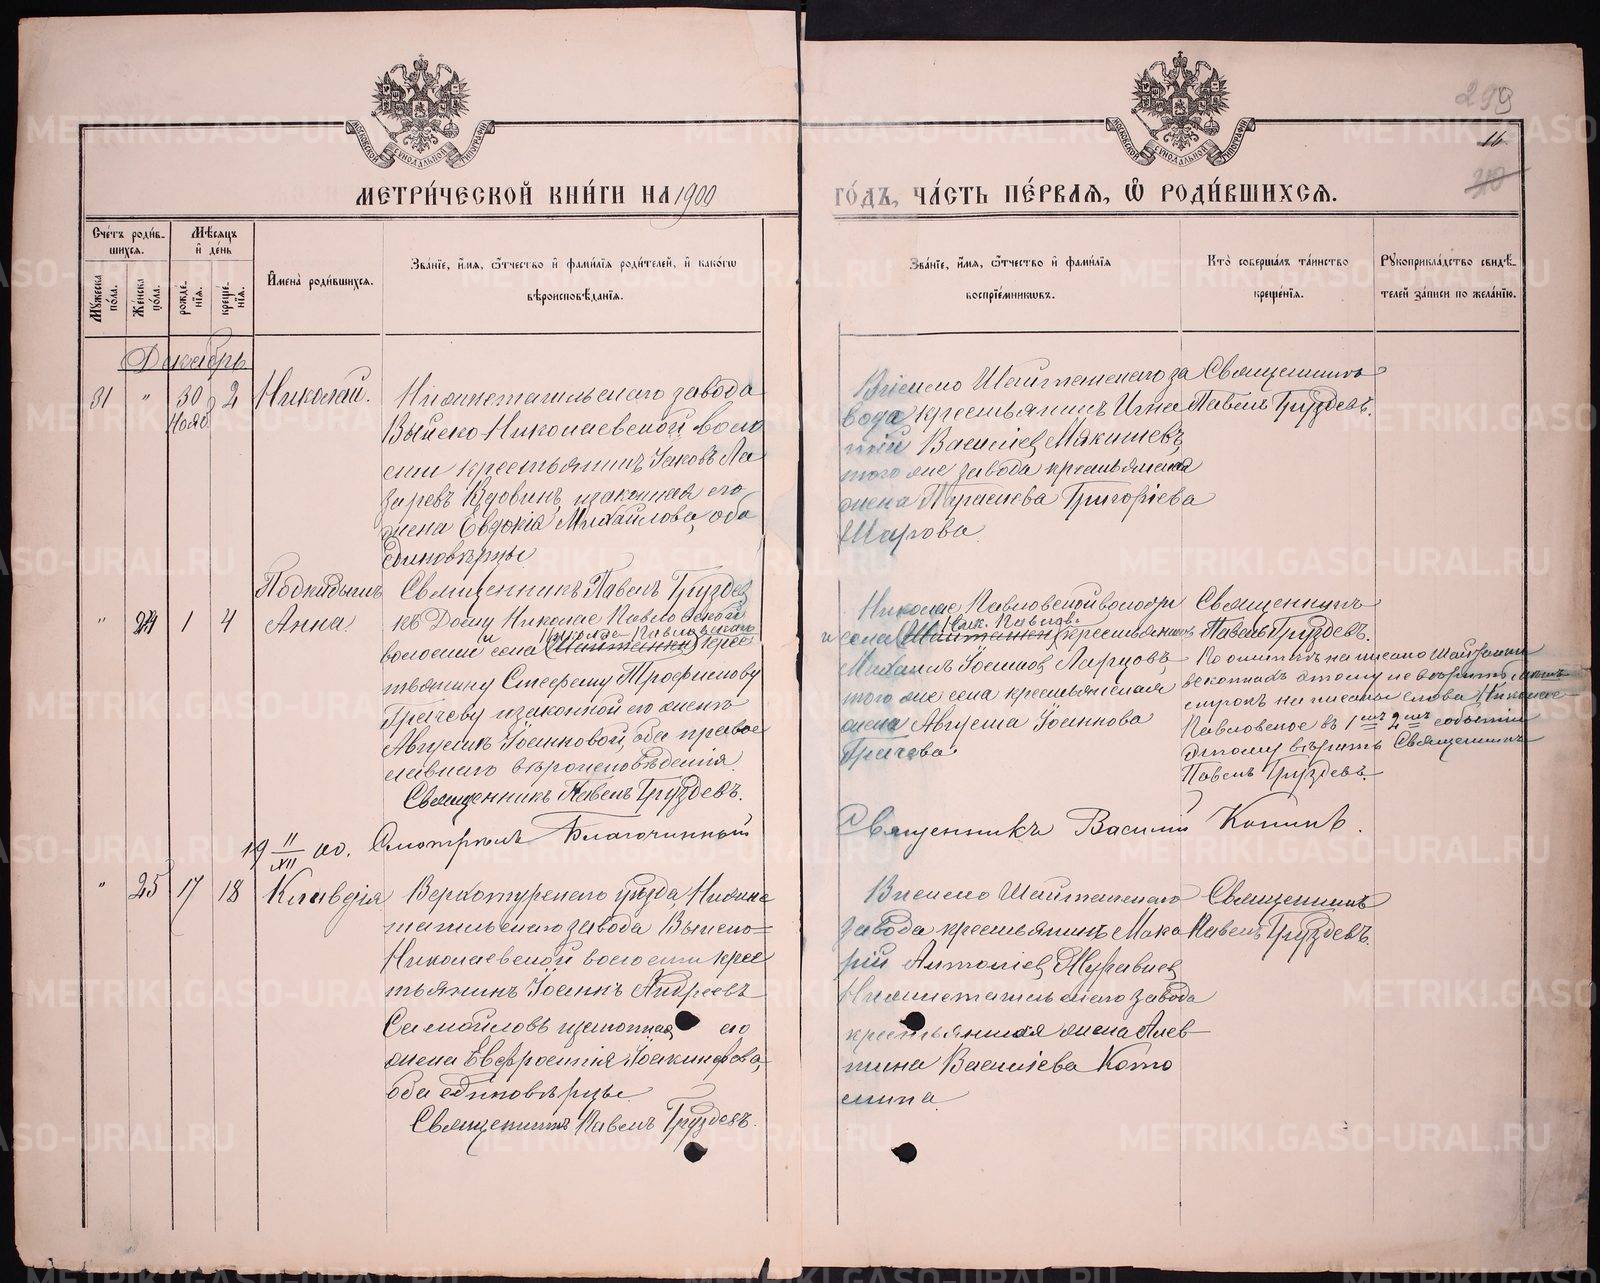 299
16
30
МЕТРИ́ЧЕСКОЙ КНИ́ГИ НА 1900
ГО́ДЪ, ЧА́СТЬ ПЕ́РВАЯ, Ѽ РОДИ́ВШИХСЯ.
Сче́тъ роди́в-
шихся.
Мѣ́сяцъ
и́ де́нь
Му́жеска
по́ла.
Же́нска
по́ла.
рожде-
нія.
креще-
нія.
И҆мена̀ роди́вшихся.
Зва́нїе, и҆́мя, ѻ҆́тчество и҆ фами́лїя роди́телей, и҆ како́гѡ
вѣроисповѣ́данїя.
Зва́нїе, и҆́мя, ѻ҆́тчество и҆ фами́лїя
воспрїе́мникѡвъ.
Кто̀ соверша́лъ та́инство
креще́нїя.
Рꙋкоприкла́дство свидѣ́-
телей за́писи по жела́нїю.
Декабрь
31 " 30 2 Николай.
Нояб
Нижнетагильскаго завода
Выйско Николаевской воло
сти крестьянинъ Іаковъ Ла
заревъ Вдовинъ, и законная его
жена Евдокія Михайлова, оба
единовѣрцы.
Висимо Шайтанскаго за
вода крестьянинъ Игна
тій Васильевъ Мякишевъ,
того же завода крестьянская
жена Параскева Григоріева
Шарова.
Священникъ
Павелъ Груздевъ.
Подкидышъ
" 24 1 4 Анна.
Священникъ Павелъ Груздевъ
къ дому Николае Павловской
волости и села (Шайтанки) Николае Павловскаго крес
тьянину Стефану Трофимову
Грачеву и законной его женѣ
Августѣ Іоанновой, оба правос
лавнаго вѣроисповѣданія.
Священникъ Павелъ Груздевъ.
Николае Павловской волости
и села (Шайтанки) Ник. Павлов. крестьянинъ
Михаилъ Іоанновъ Ларцовъ
того же села крестьянская
жена Августа Іоаннова
Грачева.
Священникъ
Павелъ Груздевъ.
По ошибкѣ написано Шайтанки
въ скобкахъ этому не вѣрить
строкъ написаны слова Николае
Павловское въ 1мъ 2мъ событіи
этому вѣрить Священникъ
Павелъ Груздевъ.
19 11/XII 00. Смотрѣлъ Благочинный
Священникъ Василій Копинъ.
" 25 17 18 Клавдія
Верхотурскаго уѣзда, Нижне
тагильскаго завода Выйско-
Николаевской волости крес
тьянинъ Іоаннъ Андреевъ
Самойловъ и законная его
жена Евфросинія Іоакинфова,
оба единовѣрцы.
Священникъ Павелъ Груздевъ.
Висимо Шайтанскаго
завода крестьянинъ Мака
рій Антоніевъ Журавлевъ,
Нижнетагильскаго завода
крестьянская жена Алев-
тина Василіева Кото
мина.
Священникъ
Павелъ Груздевъ.